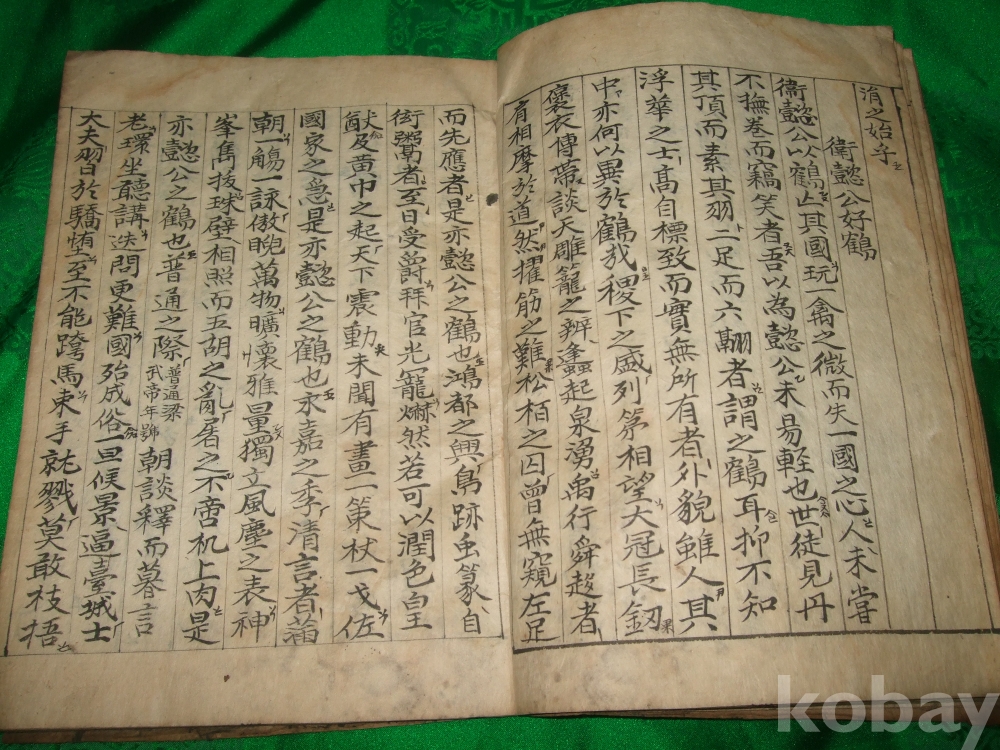 涓之始乎
衛懿公好鶴
衛懿公以鶴亡其國玩一禽之微而失一國之心人未甞
不撫卷而竊笑者吾以為懿公未易輕也世徒見丹
其頂而素其羽二足而六翮者謂之鶴耳抑不知
浮華之士高自標致而實無所有者外貌雖人其
中亦何以異於鶴哉稷下之盛列第相望大冠長釼
褒衣傳帶談天雕龍之辨蠭起泉湧禹行舜趍者
肩相摩於道然擢筋之難松柏之囚曾無窺左足
而先應者是亦懿公之鶴也鴻都之興鳥跡虫篆自
衒鬻者至日受爵拜官光寵爀然若可以潤色皇
猷及黄巾之起天下震動未聞有畫一策杖一戈佐
國家之急是亦懿公之鶴也永嘉之季清言者滿
朝一觴一詠傲睨萬物曠懷雅量獨立風塵之表神
峯雋拔珠璧相照而五胡之亂屠之不啻机上肉是
亦懿公之鶴也普通之際普通梁武帝年號朝談釋而暮言
老環坐聽講迭問更難國殆成俗一旦候景逼臺城士
大夫習於驕惰至不能跨馬束手就戮莫敢枝捂
kobay